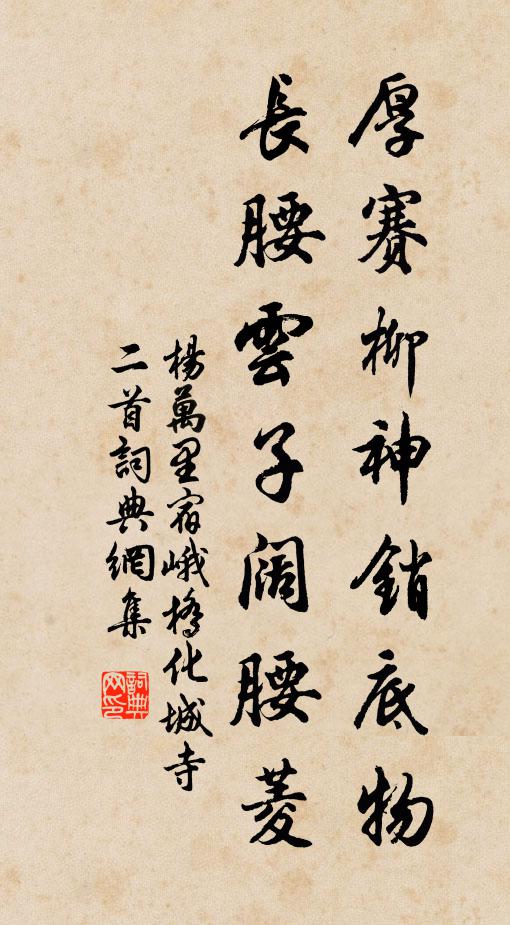 厚賽柳神銷底物
長腰雲子闊腰菱
楊萬里宿峨橋化城寺
二首詞典網集
詞典
网印